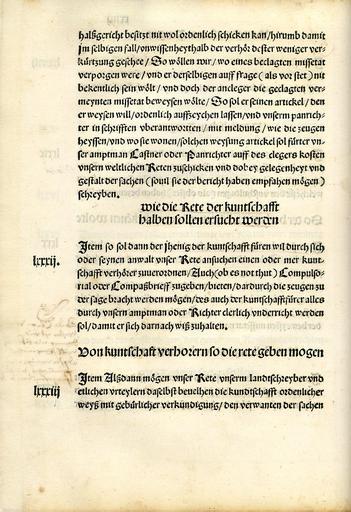 halßgericht besitzt nit wol ordenlich schicken kan/hirumb damit
im selbigen fall/unwissenheythalb der verhör dester weniger ver-
kürtzung geschee/So wöllen wir/wo eines beclagten missetat
verporgen were/und er derselbigen auff frage (als vor stet) nit
bekentlich sein wölt/und doch der ancleger die geclagten ver-
meynten missetat beweysen wölte/So sol er seinen artickel/den
er weysen will/ordenlich auffzeychen lassen/und unserm panrich-
ter in schrifften uberantworten/mit meldung/wie die zeugen
heyssen/und wo sie wonen/solchen weysung artickel sol fürter un-
ser amptman Castner oder Panrichter auff des clegers kosten
unsern weltlichen Reten zuschicken und dobey gelegenheyt und
gestalt der sachen (souil sie der bericht haben empfahen mögen)
schreyben.
wie die Rete der kuntschafft
halben sollen ersucht werden
lxxxij.
Item so sol dann der jhenig der kuntschafft füren wil durch sich
oder seynen anwalt unser Rete ansuchen einen oder mer kunt-
schafft verhörer zuuerordnen/Auch (ob es not thut) Compulso-
rial oder Compaßbrieff zugeben/bieten/dardurch die zeugen zu
der sage bracht werden mögen/des auch der kuntschafftfürer alles
durch unsern amptman oder Richter clerlich underricht werden
sol/damit er sich darnach wiß zuhalten.
Von kuntschaft verhorern so die rete geben mogen
lxxxiij
Item Alßdann mögen unser Rete unserm landtschreyber und
etlichen urteylern daselbst beuelhen die kundtschafft ordenlicher
weyß mit gebürlicher verkündigung/den verwanten der sachen